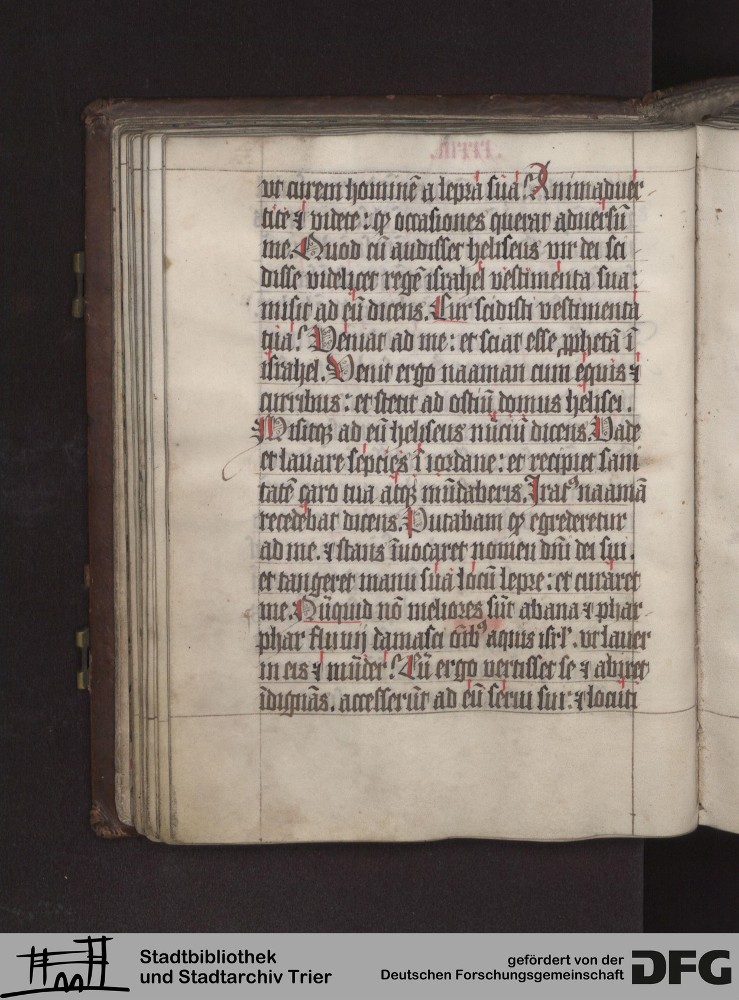 vt curem hominē a lepra sua? Animaduer
tite ⁊ videte: qꝫ occasiones querat aduersū
me. Quod cū audisset heliseus vir dei sci
disse videlicet regē israhel vestimenta sua:
misit ad eū dicens. Cur scidisti vestimenta
tua? Veniat ad me: et sciat esse ꝓphetā ī
israhel. Venit ergo naaman cum equis ⁊
curribus: et stetit ad ostiū domus helisei.
Misitqꝫ ad eū heliseus nūciū dicens. Vade
et lauare septies ī iordane: et recipiet sani
tatē caro tua atqꝫ mūdaberis. Iratꝰ naamā
recedebat dicens. Putabam qꝫ egrederetur
ad me. ⁊ stans īuocaret nomen dn̄i dei sui.
et tangeret manu sua locū lepre: et curaret
me. Nūquid nō meliores sūt abana ⁊ phar
phar fluuij damasci oībꝰ aquis isrl'. vt lauer
in eis ⁊ mūder? Cū ergo vertisset se ⁊ abiret
īdignās. accesserūt ad eū serui sui: ⁊ locuti
Stadtbibliothek
und Stadtarchiv Trier
gefördert von der
Deutschen Forschungsgemeinschaft
DFG